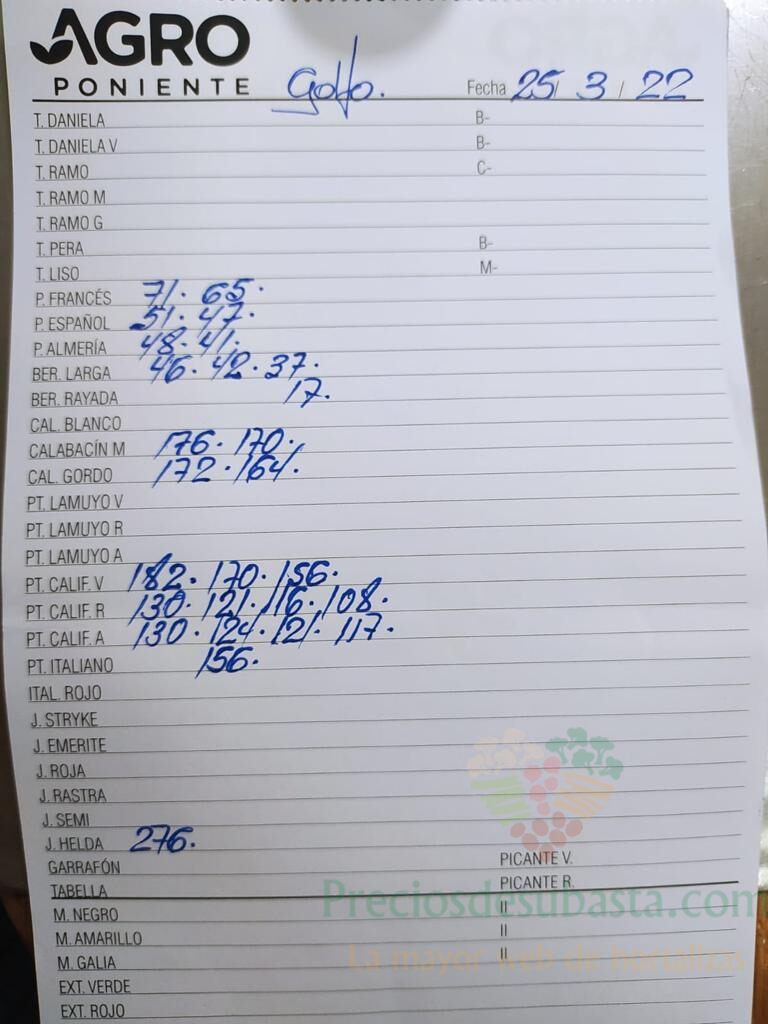 AGRO
PONIENTE Golfo. Fecha 25/ 3 / 22
T. DANIELA B-
T. DANIELA V B-
T. RAMO C-
T. RAMO M
T. RAMO G
T. PERA B-
T. LISO M-
P. FRANCÉS 71. 65.
P. ESPAÑOL 51. 47.
P. ALMERÍA 48. 41.
BER. LARGA 46. 42. 37.
BER. RAYADA 17.
CAL. BLANCO
CALABACÍN M 176. 170.
CAL. GORDO 172. 164.
PT. LAMUYO V
PT. LAMUYO R
PT. LAMUYO A
PT. CALIF. V 182. 170. 156.
PT. CALIF. R 130. 121. 116. 108.
PT. CALIF. A 130. 124. 121. 117.
PT. ITALIANO 156.
ITAL. ROJO
J. STRYKE
J. EMERITE
J. ROJA
J. RASTRA
J. SEMI
J. HELDA 276.
GARRAFÓN PICANTE V.
TABELLA PICANTE R.
M. NEGRO II
M. AMARILLO II
M. GALIA II
EXT. VERDE
EXT. ROJO
Preciosdesubasta.com
La mayor web de hortalizas